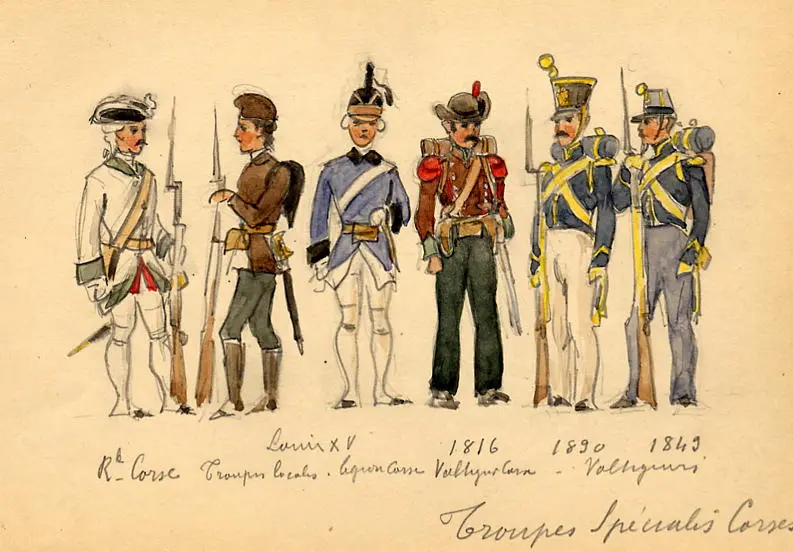 Louis XV 1816 1890 1849
Rt Corse Troupes locales. legion Corse Voltigeur Corse - Voltigeurs
Troupes Spéciales Corses